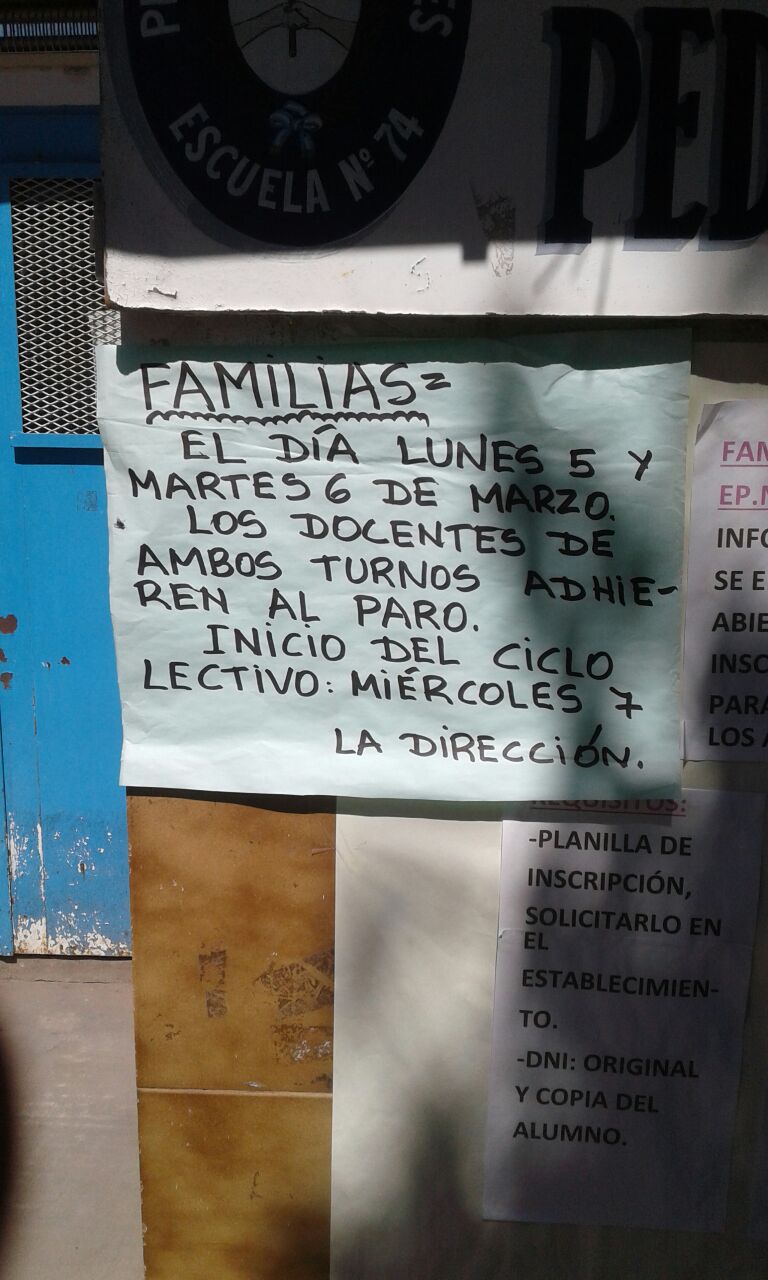 ESCUELA Nº 74
PED
FAMILIAS=
EL DÍA LUNES 5 Y
MARTES 6 DE MARZO.
LOS DOCENTES DE
AMBOS TURNOS ADHIE-
REN AL PARO.
INICIO DEL CICLO
LECTIVO: MIÉRCOLES 7
LA DIRECCIÓN.
FAM
EP.N
INFO
SE E
ABIE
INSC
PARA
LOS A
REQUISITOS:
-PLANILLA DE
INSCRIPCIÓN,
SOLICITARLO EN
EL
ESTABLECIMIEN-
TO.
-DNI: ORIGINAL
Y COPIA DEL
ALUMNO.